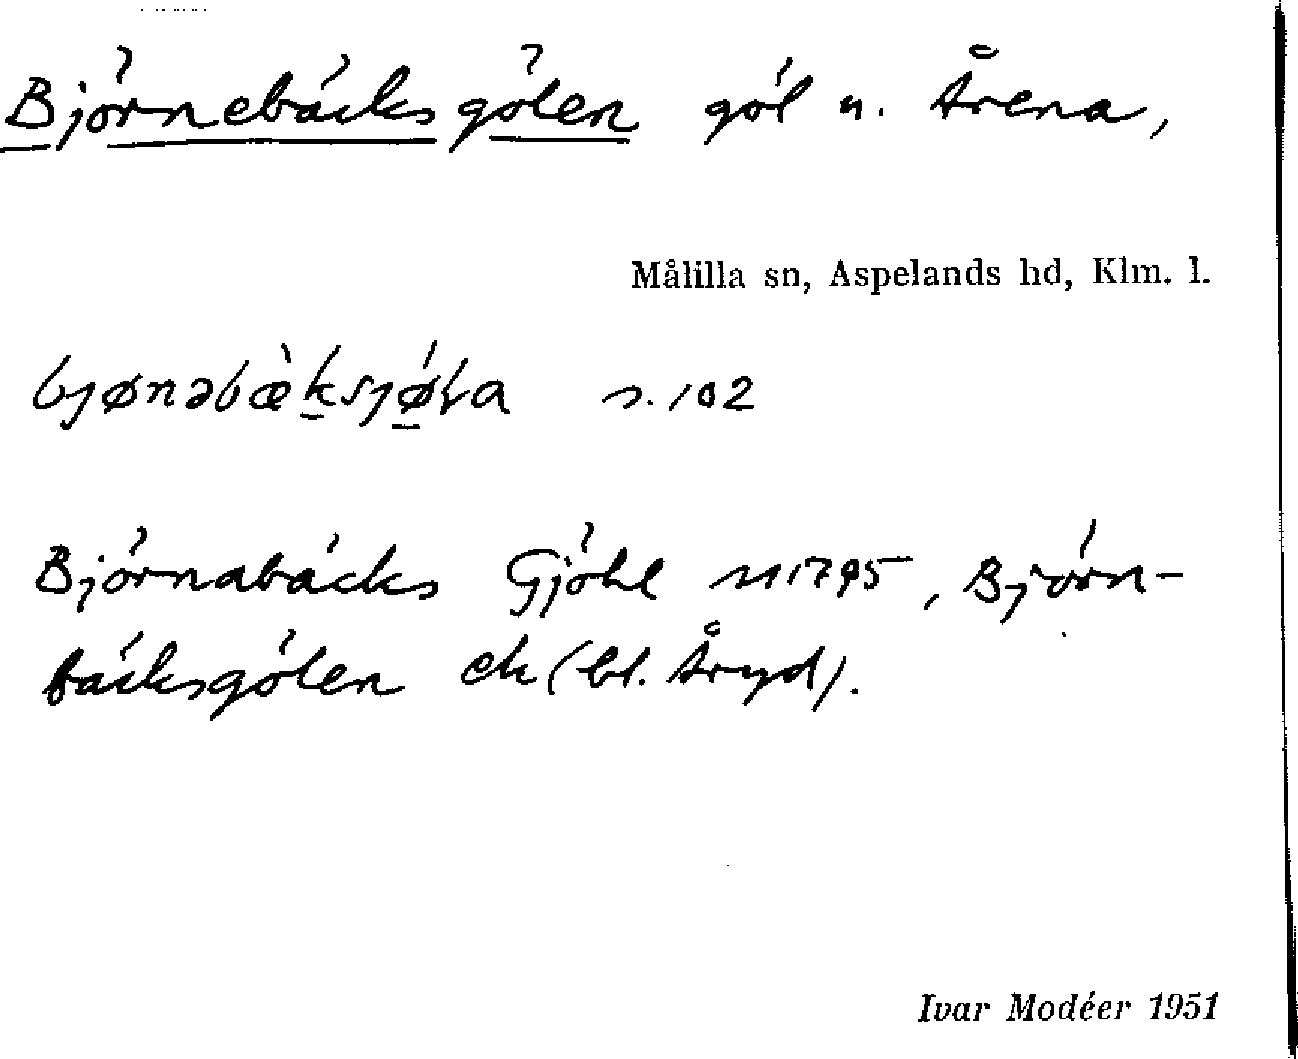 Björnebäcksgölen göl u. Årena,
Målilla sn, Aspelands hd, Klm. l.
s. 102
Björnabäcks Gjöhl m 1795, Björn-
bäcksgölen ek (bl. Åryd).
Ivar Modéer 1951